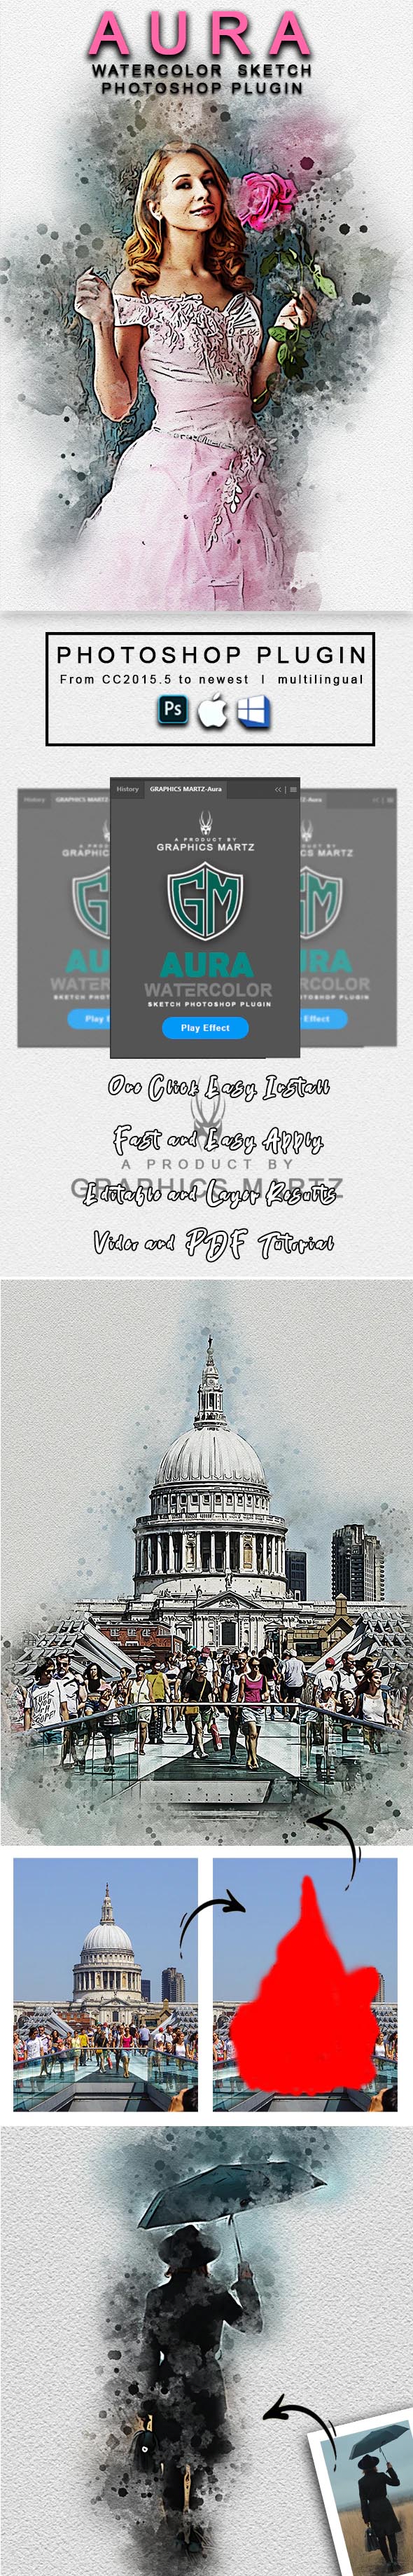 AURA
WATERCOLOR SKETCH
PHOTOSHOP PLUGIN
PHOTOSHOP PLUGIN
From CC2015.5 to newest I multilingual
Ps
History GRAPHICS MARTZ-Aura
A PRODUCT BY
GRAPHICS MARTZ
GM
AURA
WATERCOLOR
SKETCH PHOTOSHOP PLUGIN
Play Effect
One Click Easy Install
Fast and Easy Apply
A PRODUCT BY
GRAPHICS MARTZ
Editable and Layer Results
Video and PDF Tutorial